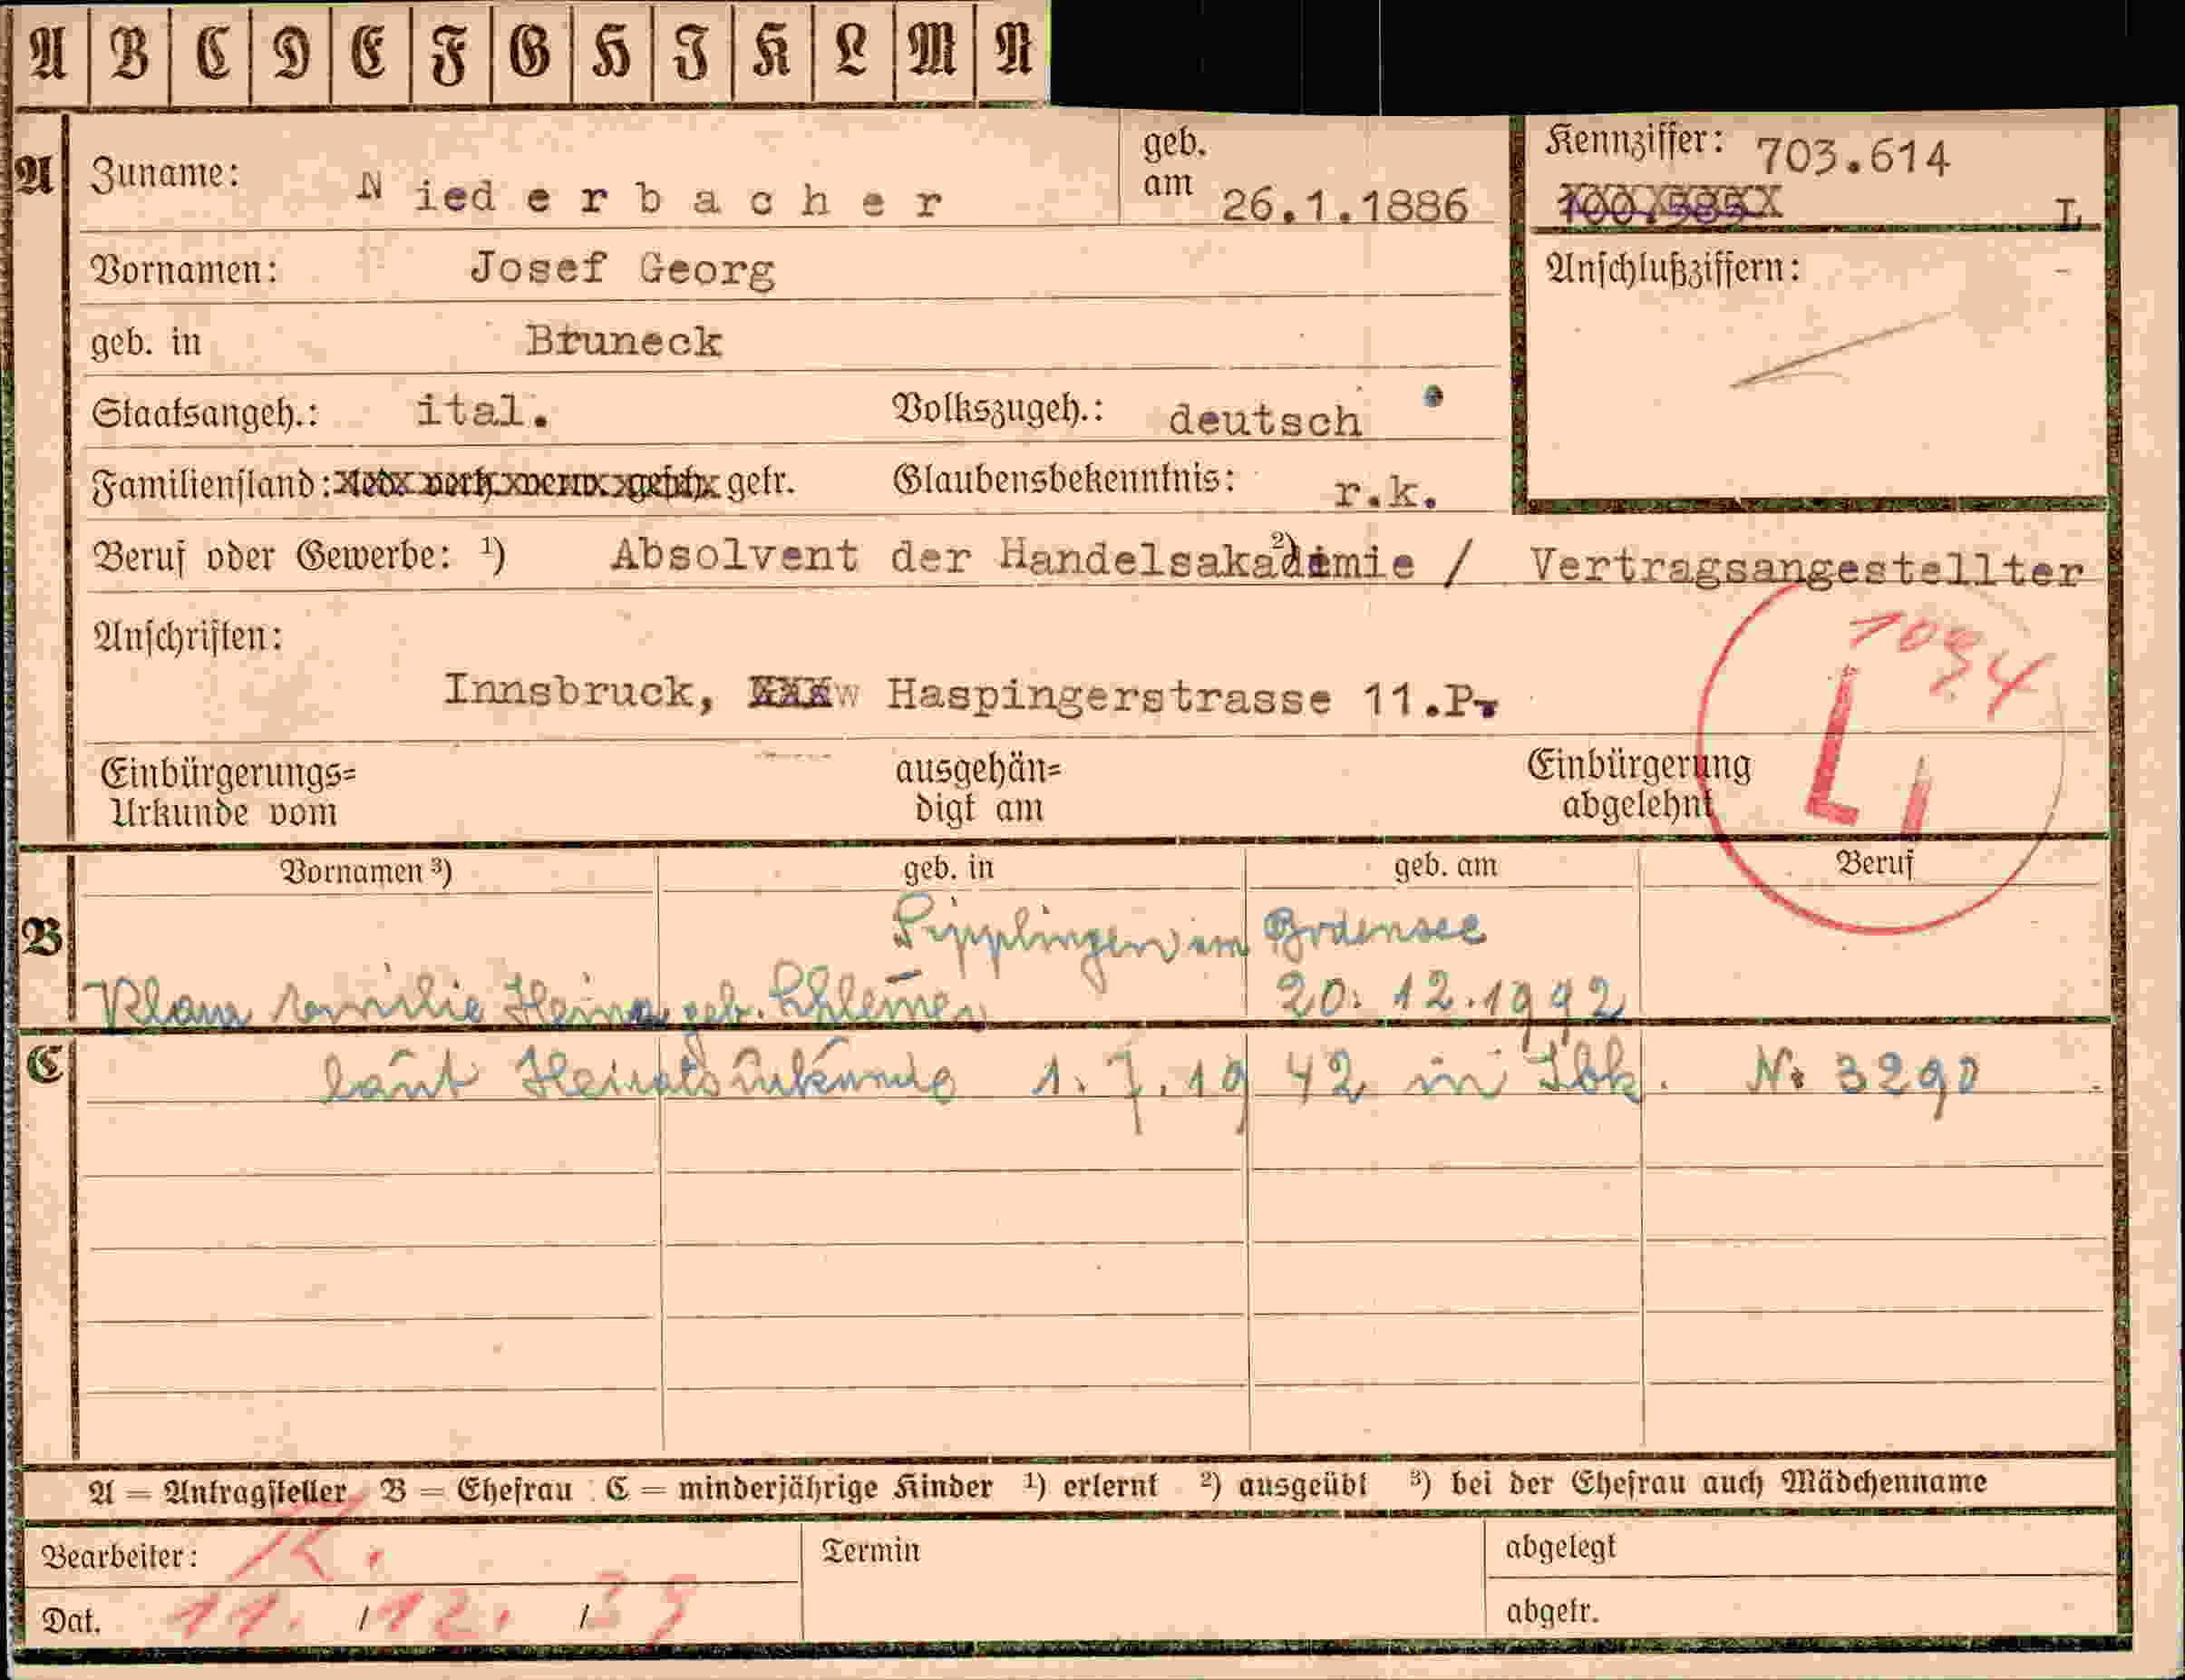 A B C D E F G H I K L M N
A Zuname: Niederbacher geb. am 26.1.1886 Kennziffer: 703.614
L
Vornamen: Josef Georg Anschlußziffern: -
geb. in Bruneck
Staatsangeh.: ital. Volkszugeh.: deutsch
Familienstand: led. verh. verw. gesch. getr. Glaubensbekenntnis: r.k.
Beruf oder Gewerbe: ¹) Absolvent der Handelsakademie / ²) Vertragsangestellter
Anschriften: 1094
Innsbruck, Haspingerstrasse 11.P.
L
Einbürgerungs= Urkunde vom ausgehän= digt am Einbürgerung abgelehnt
Vornamen ³) geb. in geb. am Beruf
B Sipplingen am Bodensee
geb. 20. 12. 1942
C laut Heiratsurkunde 1. 7. 1942 in Ibk. Nr 3290
A = Antragsteller B = Ehefrau C = minderjährige Kinder ¹) erlernt ²) ausgeübt ³) bei der Ehefrau auch Mädchenname
Bearbeiter: K. Termin abgelegt
Dat. 11. / 12. / 39 abgetr.